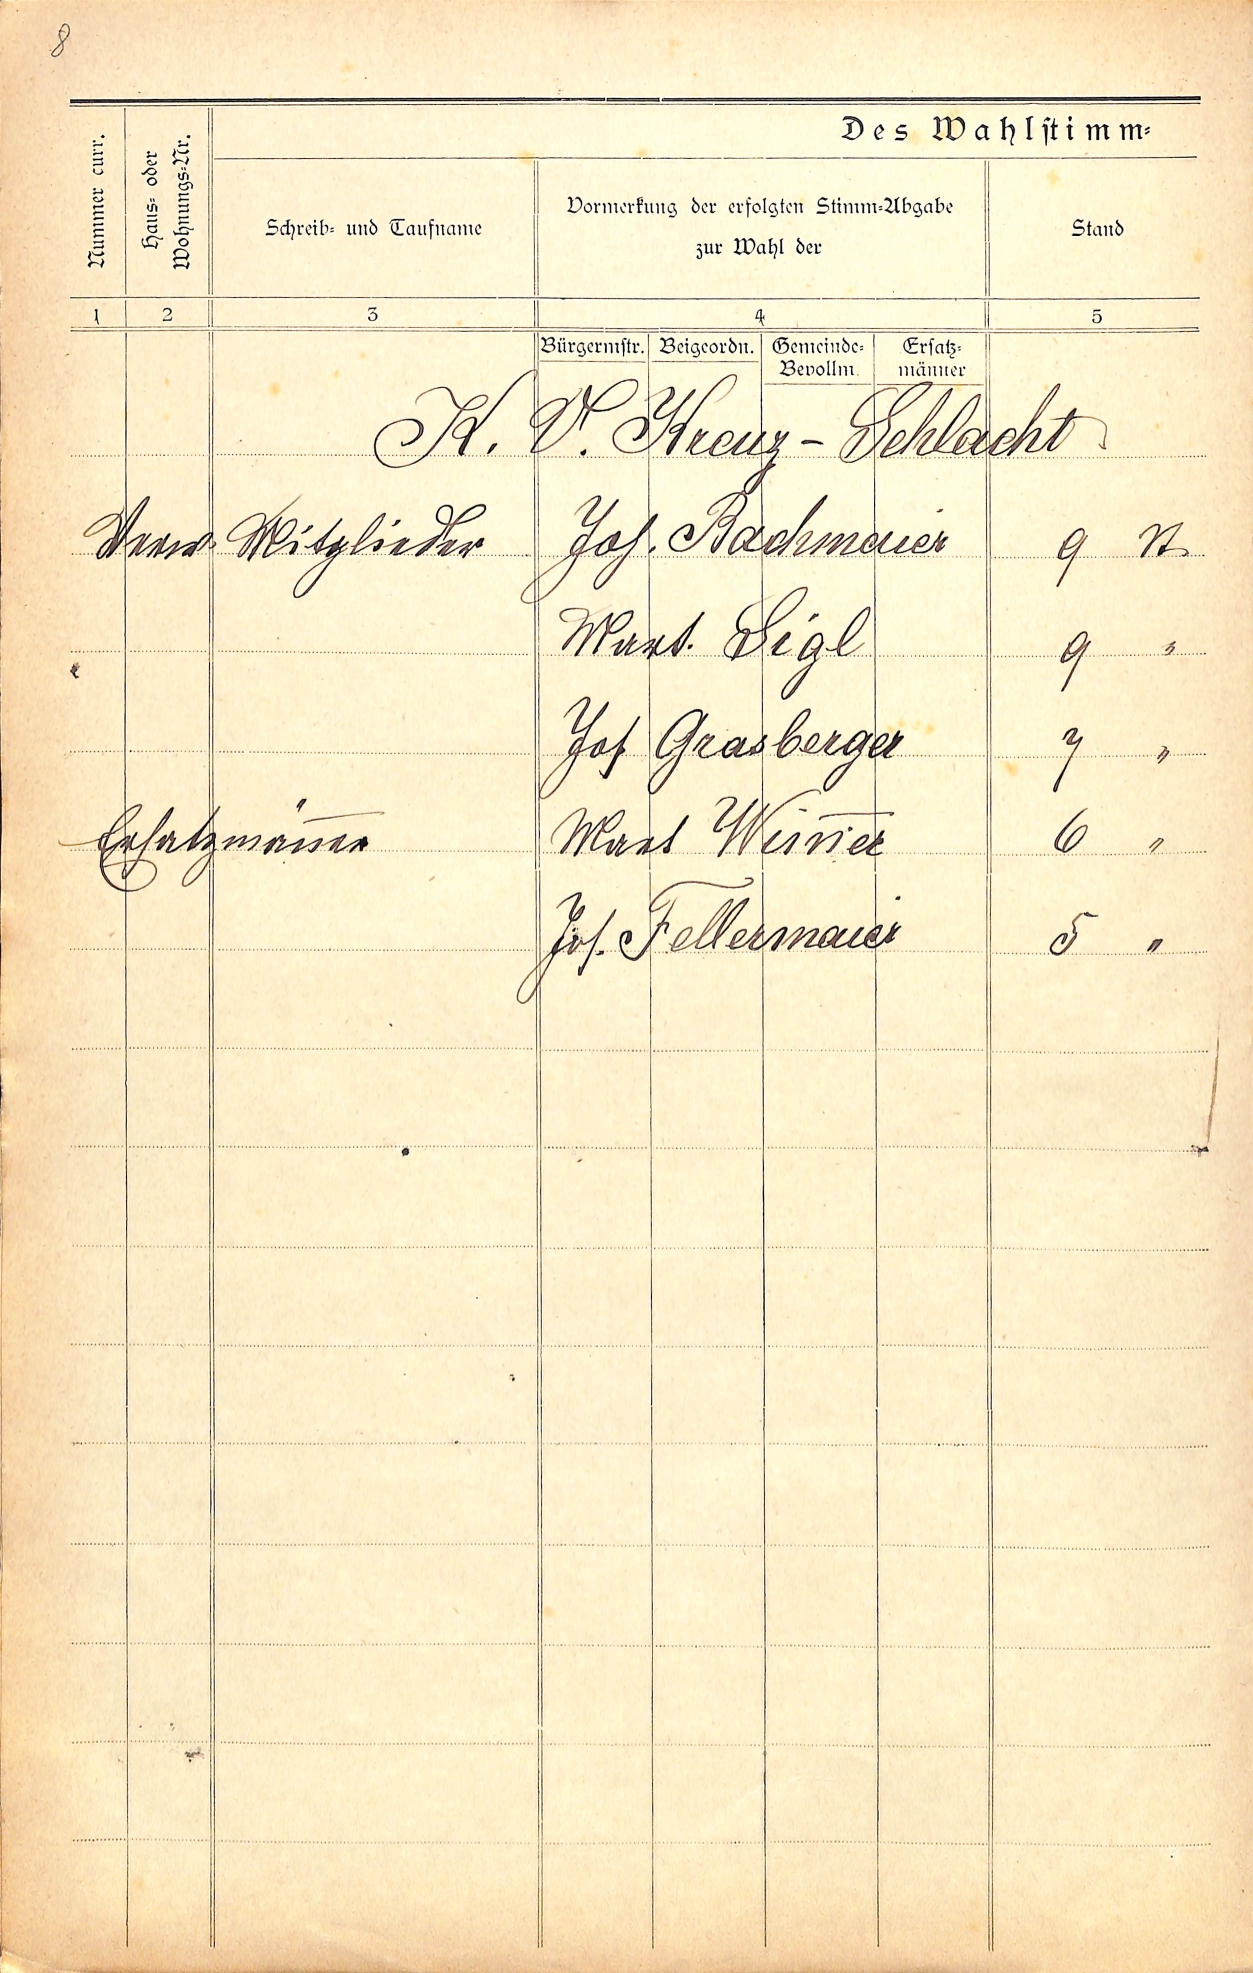 8
Des Wahlstimm-
Nummer curr.
Haus- oder
Wohnungs-Nr.
Schreib- und Taufname
Vormerkung der erfolgten Stimm-Abgabe
zur Wahl der
Stand
1 2 3 4 5
Bürgermstr. Beigeordn. Gemeinde- Ersatz-
Bevollm. männer
K. V. Kreuz - Schlacht
Verw. Mitglieder Joh. Bachmaier 9 St.
Mart. Sigl 9 "
Jos Grasberger 7 "
Ersatzmänner Mart Wim̄er 6 "
Jos. Fellermaier 5 "